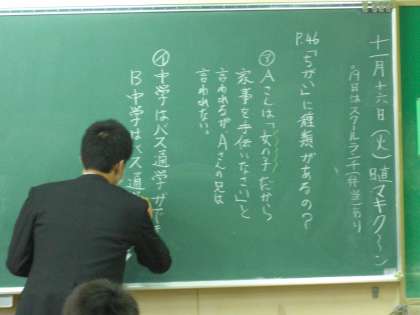 十一月十六日(火)
◦月日はスクールランチ(弁当)あり
P.46「ちがい」に種類があるの?
㋐Aさんは「女の子だから
家事を手伝いなさい」と
言われるが、Aさんの兄は
言われない。
㋑中学はバス通学ができ
B中学はバス通